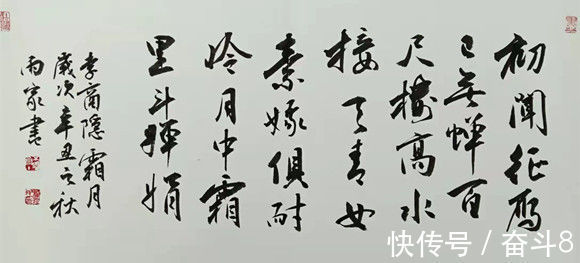 初聞征雁
已無蟬百
尺樓高水
接天青女
素娥俱耐
冷月中霜
里斗嬋娟
李商隱霜月
歲次辛丑之秋
雨家書
快传号 / 奋斗8